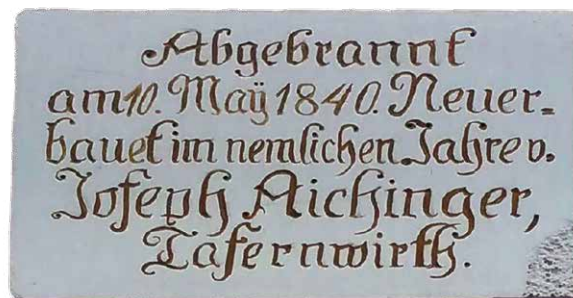 Abgebrannt
am 10. Maÿ 1840. Neuer-
bauet im nemlichen Jahre v.
Joseph Aichinger,
Tafernwirth.